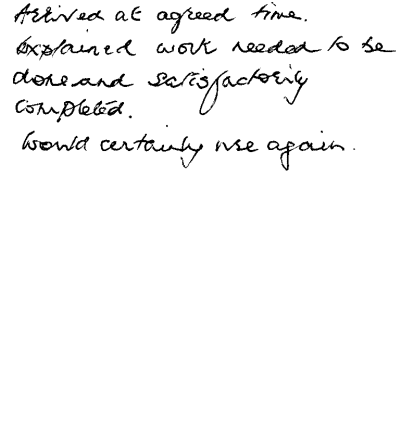 Arrived at agreed time.
Explained work needed to be
done and satisfactorily
completed.
Would certainly use again.